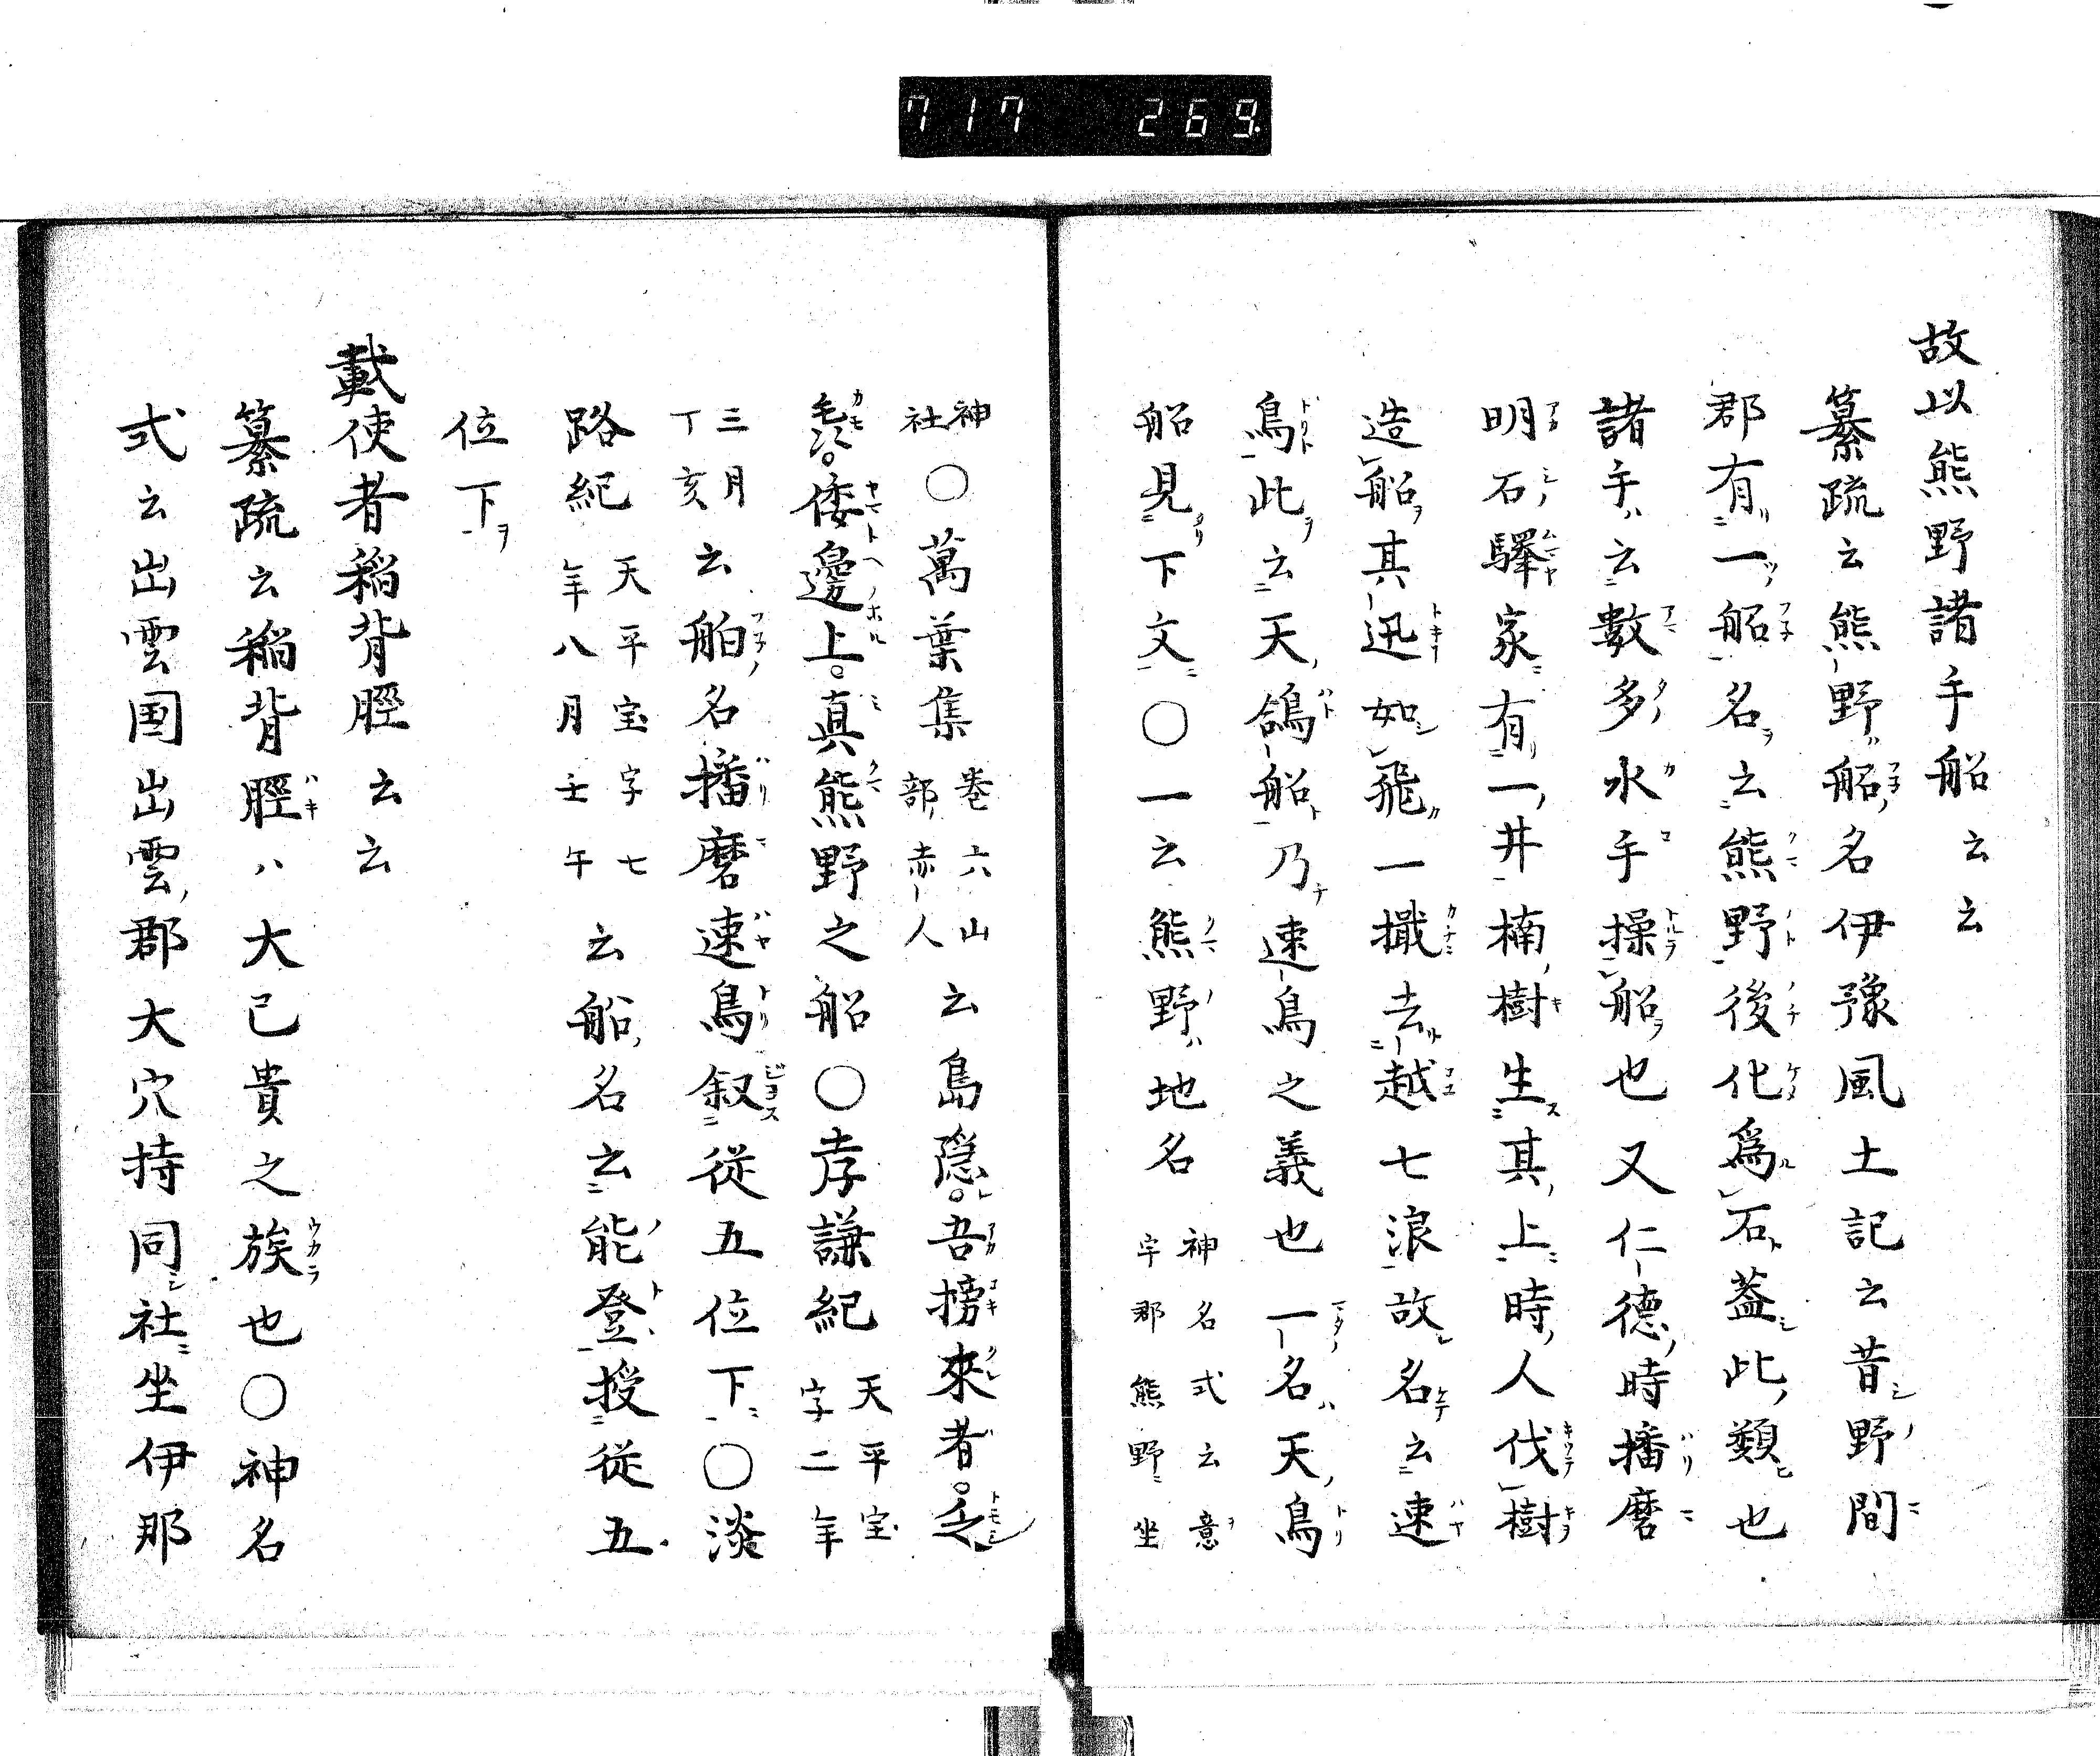 717 269.
故以熊野諸手船云云
纂疏云熊野船名伊豫風土記云昔野間
郡有一船名云熊野後化為石蓋此類也
諸手云數多水手操船也又仁徳時播磨
明石驛家有一井楠樹生其上時人伐樹
造船其迅如飛一檝去越七浪故名云速
鳥此云天鴿船乃速鳥之義也一名天鳥
船見下文〇一云熊野地名 神名式云意宇郡熊野坐
神社 〇萬葉集 巻六山部赤人 云島隠。吾搒來者。乏
毛。倭邊上。真熊野之船〇孝謙紀 天平宝字二年
三月丁亥 云舶名播磨速鳥叙従五位下〇淡
路紀 天平宝字七年八月壬午 云船名云能登授従五
位下
載使者稲背脛云云
纂疏云稲背脛ハ大己貴之族也〇神名
式云出雲国出雲郡大穴持同社坐伊那